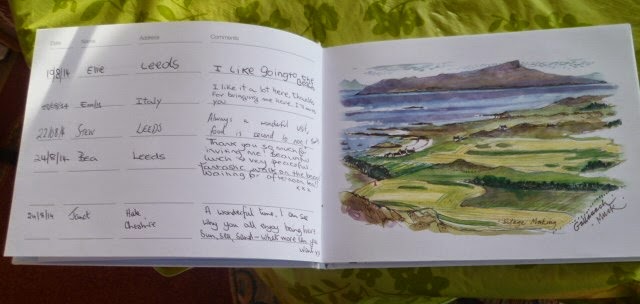 Date Name Address Comments
19/8/14 Ellie Leeds I like going to the
Beach
20/8/14 Emily Italy I like it a lot here, thanks
for bringing me here,
you
22/8/14 Stew LEEDS Always a wonderful visit,
food is second to none!
24/8/14 Bea Leeds Thank you so much for
inviting me! Beautiful
lunch & very peaceful
fantastic walk on the beach
Waiting for afternoon tea!
xxx
24/8/14 Janet Hale, A wonderful time. I can see
Cheshire why you all enjoy being here
Sun, sea, sand - what more can you
want